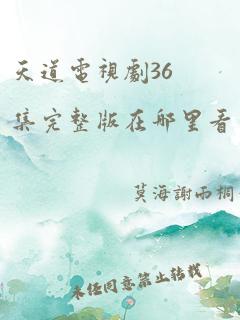 天道電視劇36
集完整版在哪里看
莫海謝雨桐
未经同意禁止转载